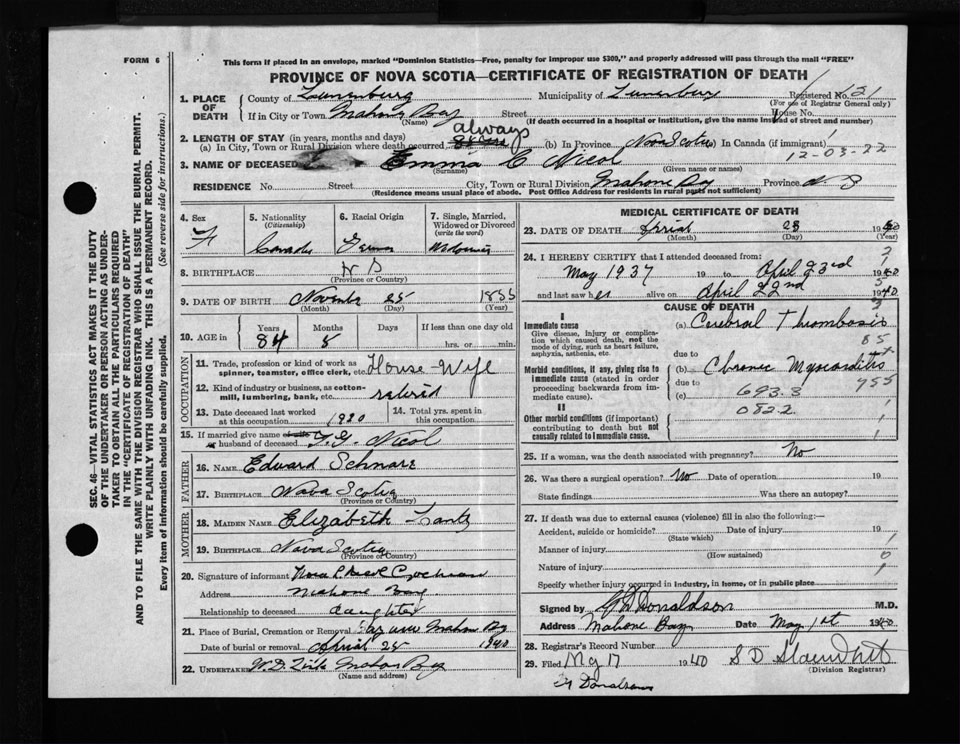 FORM 6
This form if placed in an envelope, marked "Dominion Statistics—Free, penalty for improper use $300," and properly addressed will pass through the mail "FREE"
PROVINCE OF NOVA SCOTIA—CERTIFICATE OF REGISTRATION OF DEATH
1. PLACE OF DEATH County of Lunenburg Municipality of Lunenburg Registered No. 21
(For use of Registrar General only)
If in City or Town Mahone Bay Street House No.
(Name) (If death occurred in a hospital or institution, give the name instead of street and number)
2. LENGTH OF STAY (in years, months and days)
always
(a) In City, Town or Rural Division where death occurred (b) In Province Nova Scotia In Canada (if immigrant)
12-03-22
3. NAME OF DECEASED Emma C Nicol
(Surname) (Given name or names)
RESIDENCE No. Street City, Town or Rural Division Mahone Bay Province N S
(Residence means usual place of abode. Post Office Address for residents in rural parts not sufficient)
SEC. 46—VITAL STATISTICS ACT MAKES IT THE DUTY
OF THE UNDERTAKER OR PERSON ACTING AS UNDER-
TAKER TO OBTAIN ALL THE PARTICULARS REQUIRED
IN THE "CERTIFICATE OF REGISTRATION OF DEATH"
AND TO FILE THE SAME WITH THE DIVISION REGISTRAR WHO SHALL ISSUE THE BURIAL PERMIT.
WRITE PLAINLY WITH UNFADING INK. THIS IS A PERMANENT RECORD.
Every item of information should be carefully supplied. (See reverse side for instructions.)
4. Sex
F
5. Nationality
(Citizenship)
6. Racial Origin
German
7. Single, Married,
Widowed or Divorced
(write the word)
8. BIRTHPLACE N S
(Province or Country)
9. DATE OF BIRTH November 25 1855
(Month) (Day) (Year)
10. AGE in Years Months Days If less than one day old
84 5 hrs. or min.
OCCUPATION
11. Trade, profession or kind of work as
spinner, teamster, office clerk, etc. House Wife
12. Kind of industry or business, as cotton-
mill, lumbering, bank, etc. retired
13. Date deceased last worked
at this occupation 1920
14. Total yrs. spent in
this occupation
15. If married give name
husband of deceased Nicol
FATHER
16. NAME Edward Schnare
17. BIRTHPLACE Nova Scotia
(Province or Country)
MOTHER
18. MAIDEN NAME Elizabeth Lantz
19. BIRTHPLACE Nova Scotia
(Province or Country)
20. Signature of informant Cochran
Address Mahone Bay
Relationship to deceased daughter
21. Place of Burial, Cremation or Removal Bay view Mahone Bay
Date of burial or removal April 25 1940
22. UNDERTAKER W.D. Mahone Bay
(Name and address)
MEDICAL CERTIFICATE OF DEATH
23. DATE OF DEATH April 23 1940
(Month) (Day) (Year)
24. I HEREBY CERTIFY that I attended deceased from:
May 1937 19 to April 23rd 1940
and last saw her alive on April 22nd 1940
CAUSE OF DEATH
I
Immediate cause
Give disease, injury or complication which caused death, not the mode of dying, such as heart failure, asphyxia, asthenia, etc.
(a) Cerebral Thrombosis
85
due to
Morbid conditions, if any, giving rise to immediate cause (stated in order proceeding backwards from immediate cause).
(b) Chronic Myocarditis
955
due to
(c) 693.3
082.2
II
Other morbid conditions (if important) contributing to death but not causally related to immediate cause.
25. If a woman, was the death associated with pregnancy? No
26. Was there a surgical operation? No Date of operation 19
State findings Was there an autopsy?
27. If death was due to external causes (violence) fill in also the following:—
Accident, suicide or homicide? Date of injury 19
(State which)
Manner of injury
(How sustained)
Nature of injury
Specify whether injury occurred in industry, in home, or in public place
Signed by Donaldson M.D.
Address Mahone Bay Date May 1st 1940
28. Registrar's Record Number
29. Filed My 17 1940 S D
(Division Registrar)
Donaldson